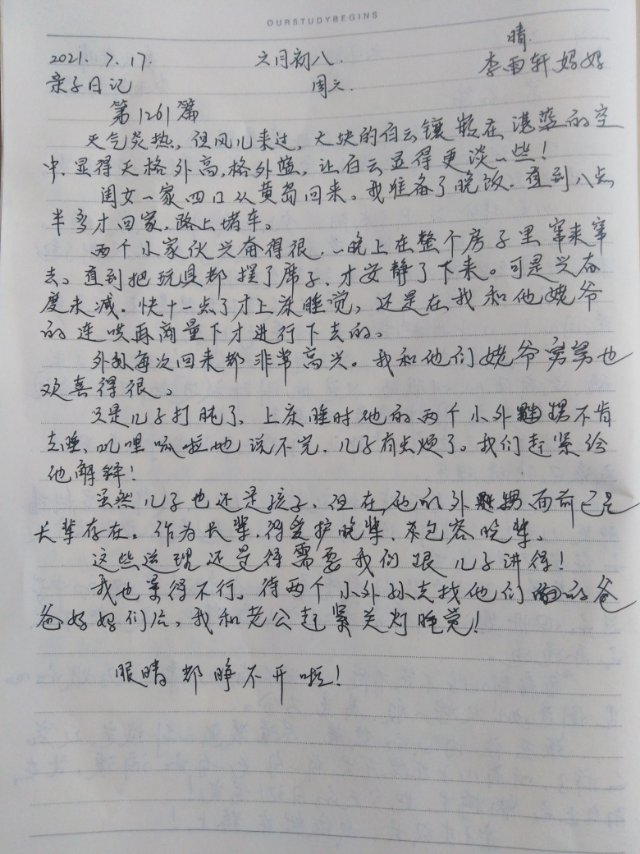 OURSTUDYBEGINS
晴.
2021. 7. 17. 六月初八. 李雨轩妈妈
亲子日记 周六.
第1261篇
天气炎热，但风儿来过，大块的白云镶嵌在湛蓝的空
中.显得天格外高,格外蓝，让白云显得更淡一些！
闺女一家四口从黄岛回来。我准备了晚饭.直到八点
半多才回家.路上堵车。
两个小家伙兴奋得很.一晚上在整个房子里窜来窜
去。直到把玩具都摆了席子.才安静了下来。可是兴奋
度未减.快十一点了才上床睡觉，还是在我和他姥爷
的连哄再商量下才进行下去的。
外孙每次回来都非常高兴。我和他们姥爷舅舅也
欢喜得很。
只是儿子打盹了、上床睡时他的两个小外甥不肯
去睡、叽哩呱啦地说不完.儿子有点烦了。我们赶紧给
他解释！
虽然儿子也还是孩子.但在他的外甥面前已是
长辈存在。作为长辈.得爱护晚辈、来包容晚辈。
这些道理还是得需要我们跟儿子讲得！
我也累得不行。待两个小外孙去找他们的爸
爸妈妈们后，我和老公赶紧关灯睡觉！
眼睛都睁不开啦！